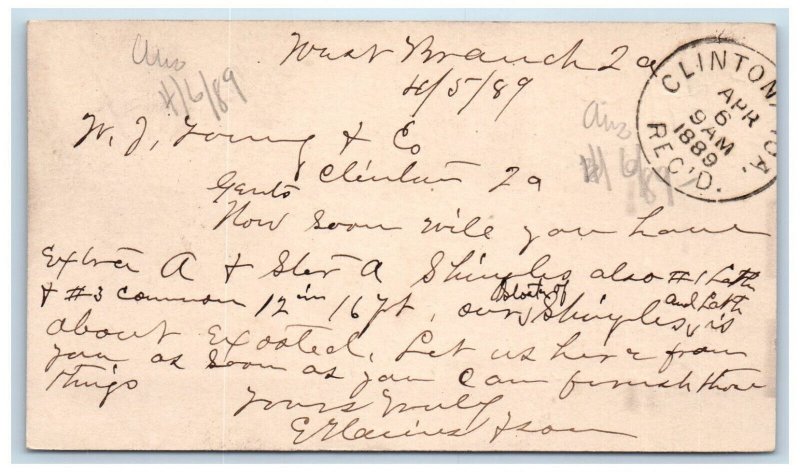 West Branch Ia
4/5/89
Ans
4/6/89
CLINTON, IOWA
APR
6
9AM
1889
REC'D.
W. J. Young & Co
Clinton Ia
Ans
4/6/89
Gents
How soon will you have
Extra A & Star A Shingles also #1 Lath
& #3 common 12 in 16 ft, our stock of Shingles and Lath is
about exosted. Let us here from
you as soon as you can furnish those
things
Yours Truly
E Haines & Son